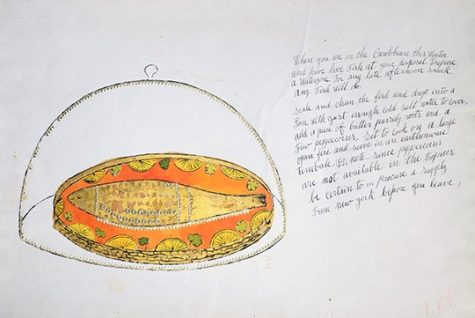 When you are in the Caribbean this Winter
and have live fish at your disposal. Prepare
a Waterzoie for any late afternoon snack.
Any fish will do.
and clean the fish and drop into a
Pan with just enough cold salt water to cover
add a piece of butter parsely roots and a
few peppercorns. Set to cook on a large
open fire and serve in an earthenware
timbale. note. since peppercorns
are not available in the tropics
be certain to procure a supply
from new york before you leave,